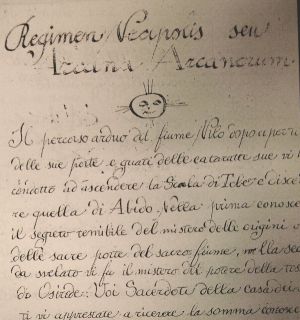 Regimen Neapolis seu
Arcana Arcanorum
Il percorso arduo del fiume Nilo dopo aperv
delle sue porte e guari delle cataratte sue vi
condotto ad ascendere la Scala di Tebe e disce
re quella di Abido. Nella prima conosce
il segreto temibile del mistero delle origini o
delle sacre porte del sacro fiume, nella sec
da svelato vi fu il mistero del potere della
di Osiride: Voi Sacerdoti della casa dei
ti vi apprestate a ricevere la somma conosc